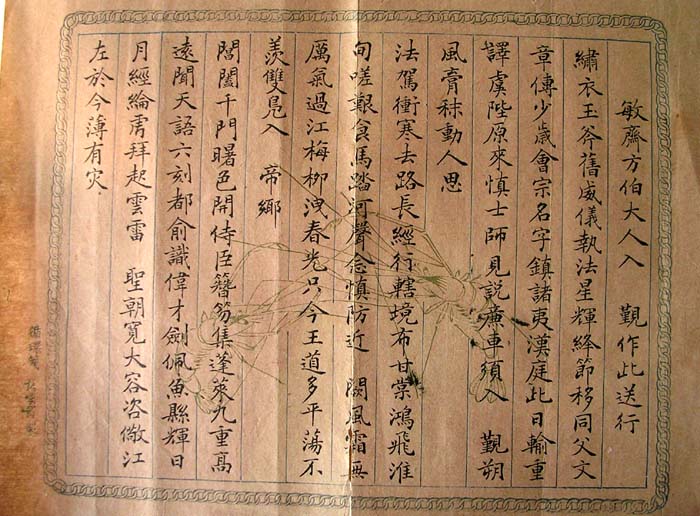 敏齋方伯大人入 覲作此送行
繡衣玉斧舊威儀執法星輝絳節移同父文
章傳少歲會宗名字鎮諸夷漢庭此日輸重
譯虞陛原來慎士師見說蕭車須入 覲朔
風膏秣動人思
法駕衝寒去路長經行轄境布甘棠鴻飛淮
甸嗟艱食馬踏河聲念慎防近 闕風霜無
厲氣過江梅柳洩春光只今王道多平蕩不
羨雙鳧入 帝鄉
閶闔千門曙色開侍臣簪笏集蓬萊九重高
遠聞天語六刻都俞識偉才劍佩魚縣輝日
月經綸雩拜起雲雷 聖朝寬大容咨儆江
左於今薄有灾